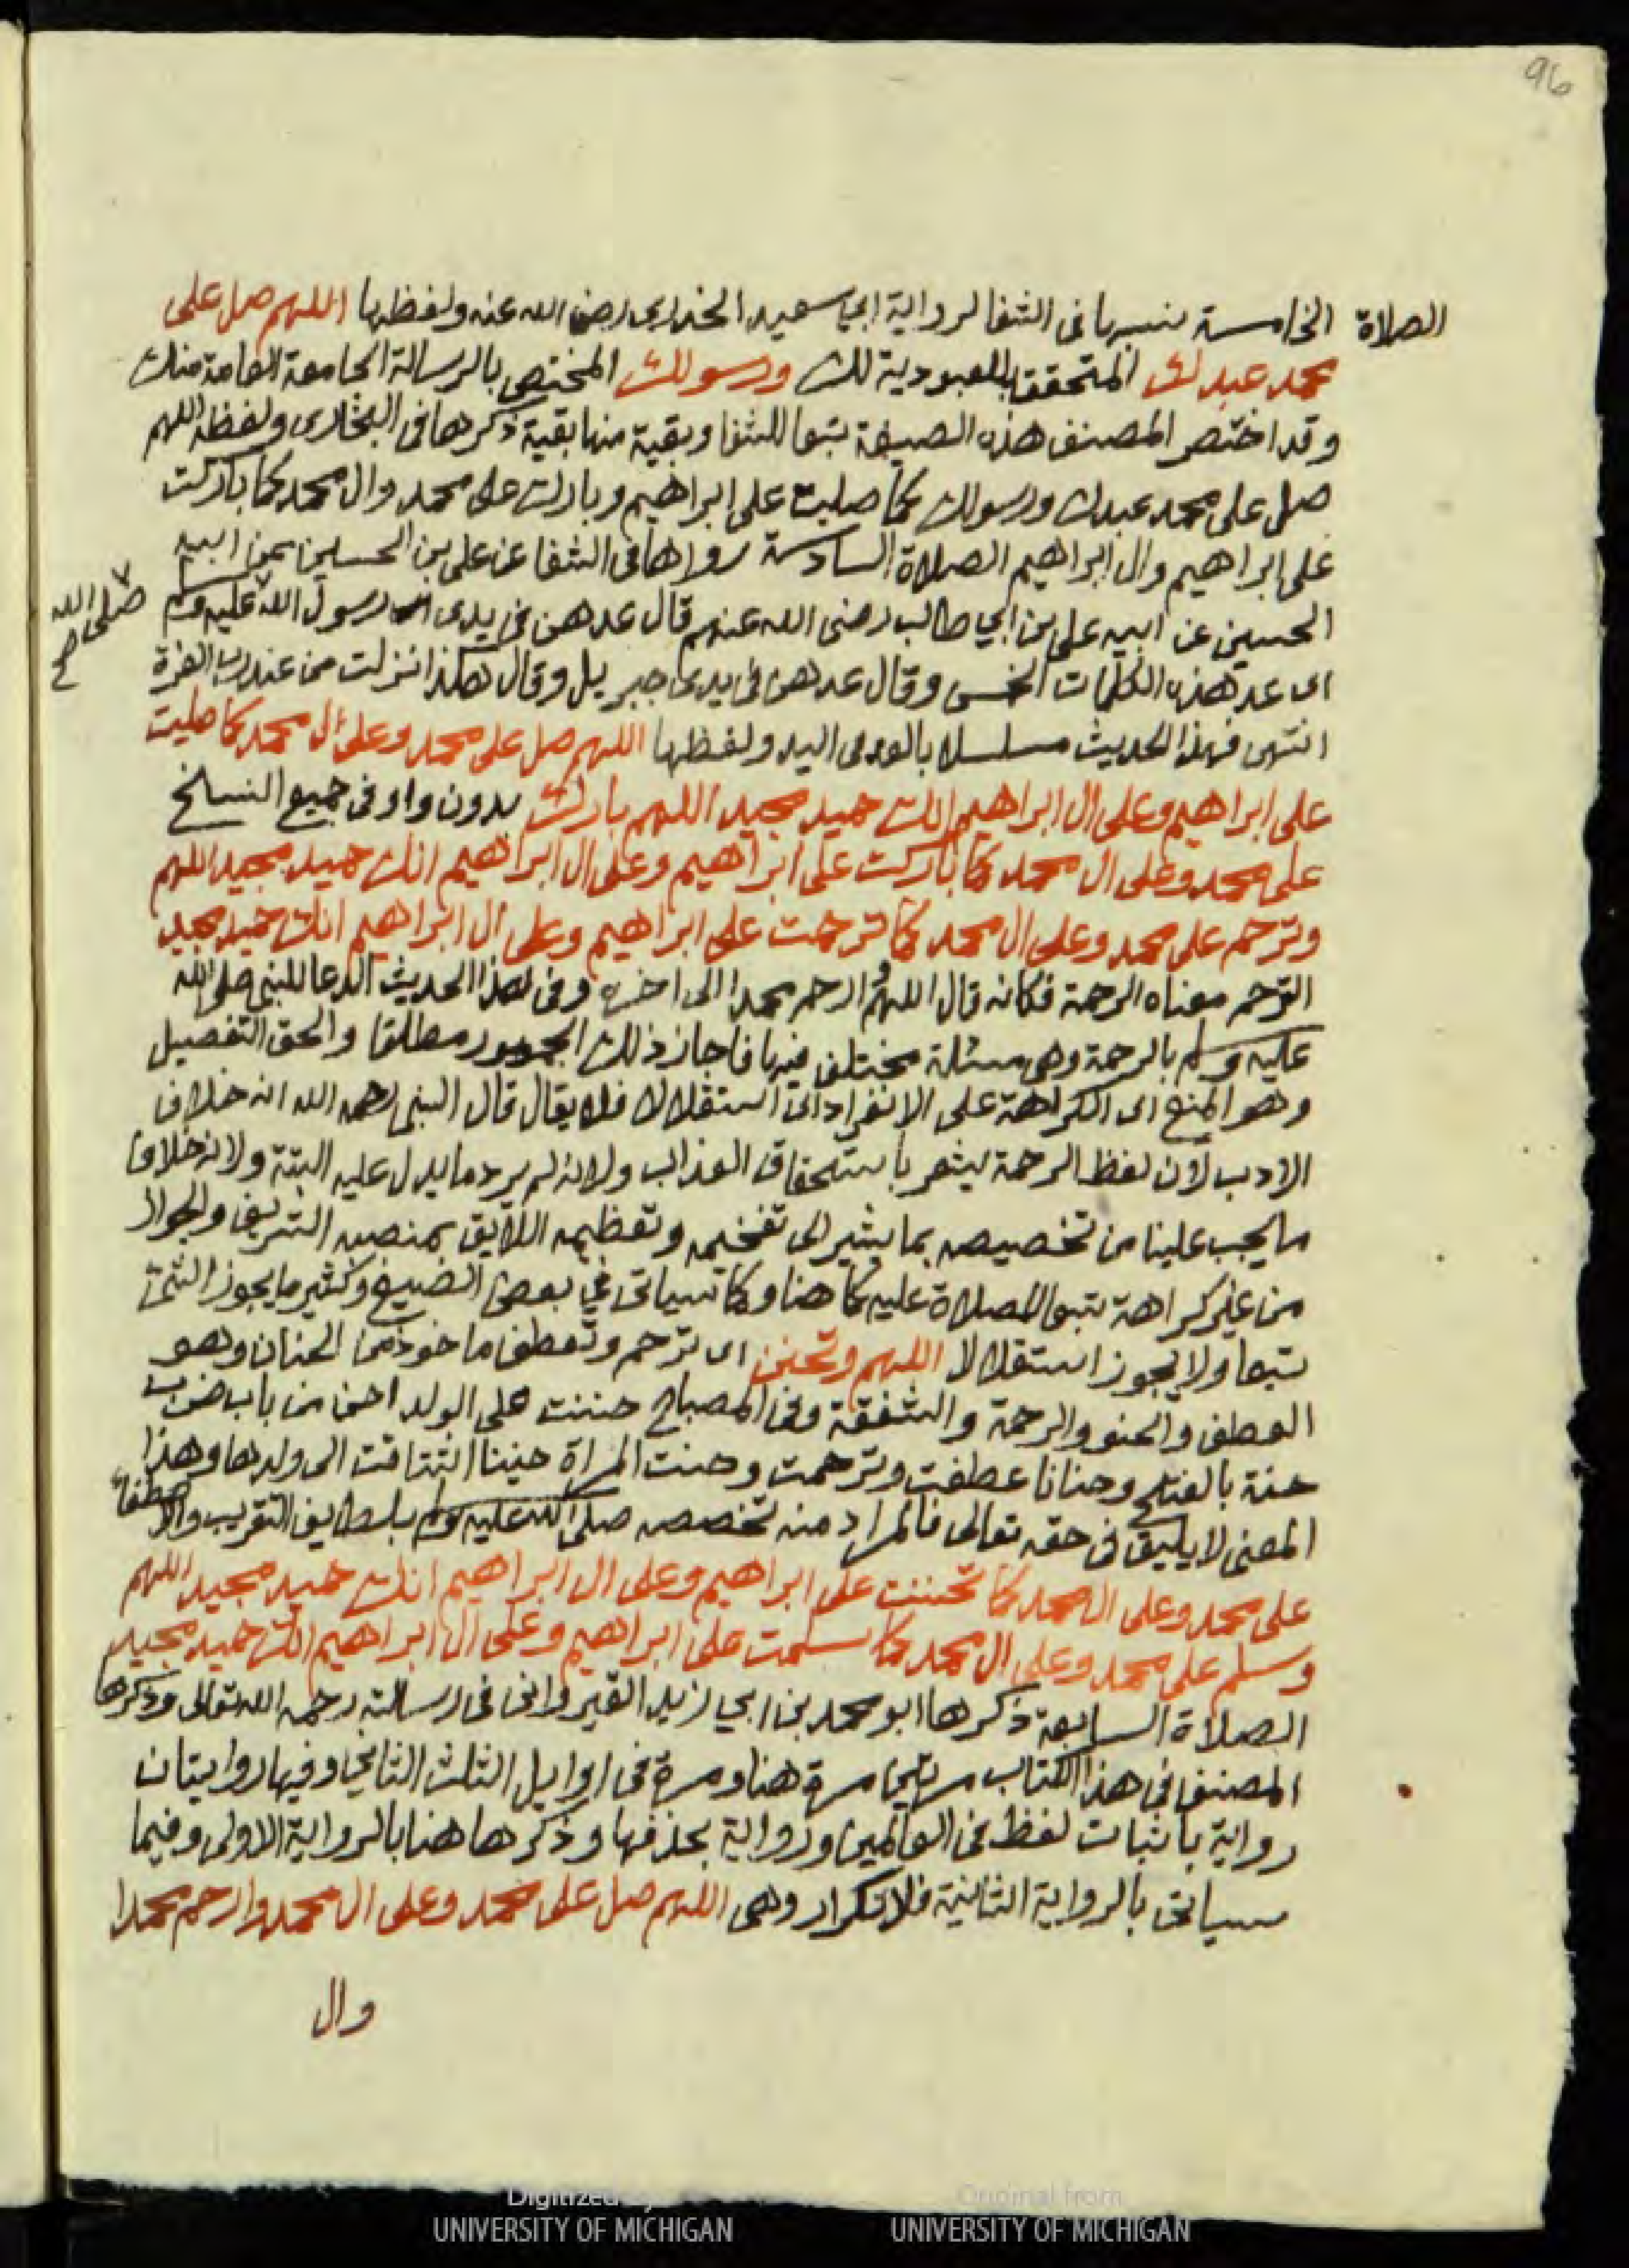 96
الصلاة الخامسة ينسبها فى الشفا لرواية ابي سعيد الخدرى رضى الله عنه ولفظها اللهم صل على
محمد عبدك المتحقق بالعبودية لك ورسولك المختص بالرسالة الجامعة العامة منك
وقد اختصر المصنف هذه الصيغة تبعا للشفا وبقية منها بقية ذكرها فى البخارى ولفظه اللهم
صل على محمد عبدك ورسولك كما صليت على ابراهيم وبارك على محمد وال محمد كما باركت
على ابراهيم وال ابراهيم الصلاة السادسة رواها فى الشفا عن على بن الحسين عن ابيه
الحسين عن ابيه على بن ابي طالب رضى الله عنهم قال عدهن فى يدى رسول الله عليه وسلم
صلى الله
صح
اى عد هذه الكلمات الخمس وقال عدهن فى يدى جبريل وقال هكذا نزلت من عند رب العزة
انتهى فهذا الحديث مسلسلا بالعد فى اليد ولفظها اللهم صل على محمد وعلى ال محمد كما صليت
على ابراهيم وعلى ال ابراهيم انك حميد مجيد اللهم بارك بدون واو فى جميع النسخ
على محمد وعلى ال محمد كما باركت على ابراهيم وعلى ال ابراهيم انك حميد مجيد اللهم
وترحم على محمد وعلى ال محمد كما ترحمت على ابراهيم وعلى ال ابراهيم انك حميد مجيد
الترحم معناه الرحمة فكانه قال اللهم وارحم محمدا الى اخره وفى هذا الحديث الدعا للنبى صلى الله
عليه وسلم بالرحمة وهى مسئلة مختلف فيها فاجاز ذلك الجمهور مطلقا والحق التفصيل
وهو المنع اى الكراهة على الانفراد اى استقلالا فلا يقال قال النبى رحمه الله انه خلاف
الادب لان لفظ الرحمة يشعر باستحقاق العذاب ولانه لم يرد ما يدل عليه البتة ولانه خلاف
ما يجب علينا من تخصيصه بما يشير الى تفخيمه وتعظيمه اللايق بمنصبه الشريف والجواز
من غير كراهة تبعا للصلاة عليه كما هنا وكما سياتى في بعض الصيغ وكثير ما يجوز الشئ
تبعا ولا يجوز استقلالا اللهم وتحنن اى ترحم وتعطف ماخوذ من الحنان وهو
العطف والحنو والرحمة والشفقة وفى المصباح حننت على الولد احن من باب ضرب
حنة بالفتح وحنانا عطفت وترحمت وحنت المراة حنينا اشتاقت الى ولدها وهذا
المعنى لا يليق فى حقه تعالى فالمراد منه تخصصه صلى الله عليه وسلم بلطايف التقريب والاصطفاء
على محمد وعلى ال محمد كما تحننت على ابراهيم وعلى ال ابراهيم انك حميد مجيد اللهم
وسلم على محمد وعلى ال محمد كما سلمت على ابراهيم وعلى ال ابراهيم انك حميد مجيد
الصلاة السابعة ذكرها ابو محمد بن ابي زيد القيروانى فى رسالته رحمه الله تعالى وذكرها
المصنف فى هذا الكتاب مرتين مرة هنا ومرة فى اوايل الثلث الثاني وفيها روايتان
رواية باثبات لفظ فى العالمين ورواية بحذفها وذكرها هنا بالرواية الاولى وفيما
سياتى بالرواية الثانية فلا تكرار وهى اللهم صل على محمد وعلى ال محمد وارحم محمدا
وال
Digitized by
UNIVERSITY OF MICHIGAN
Original from
UNIVERSITY OF MICHIGAN